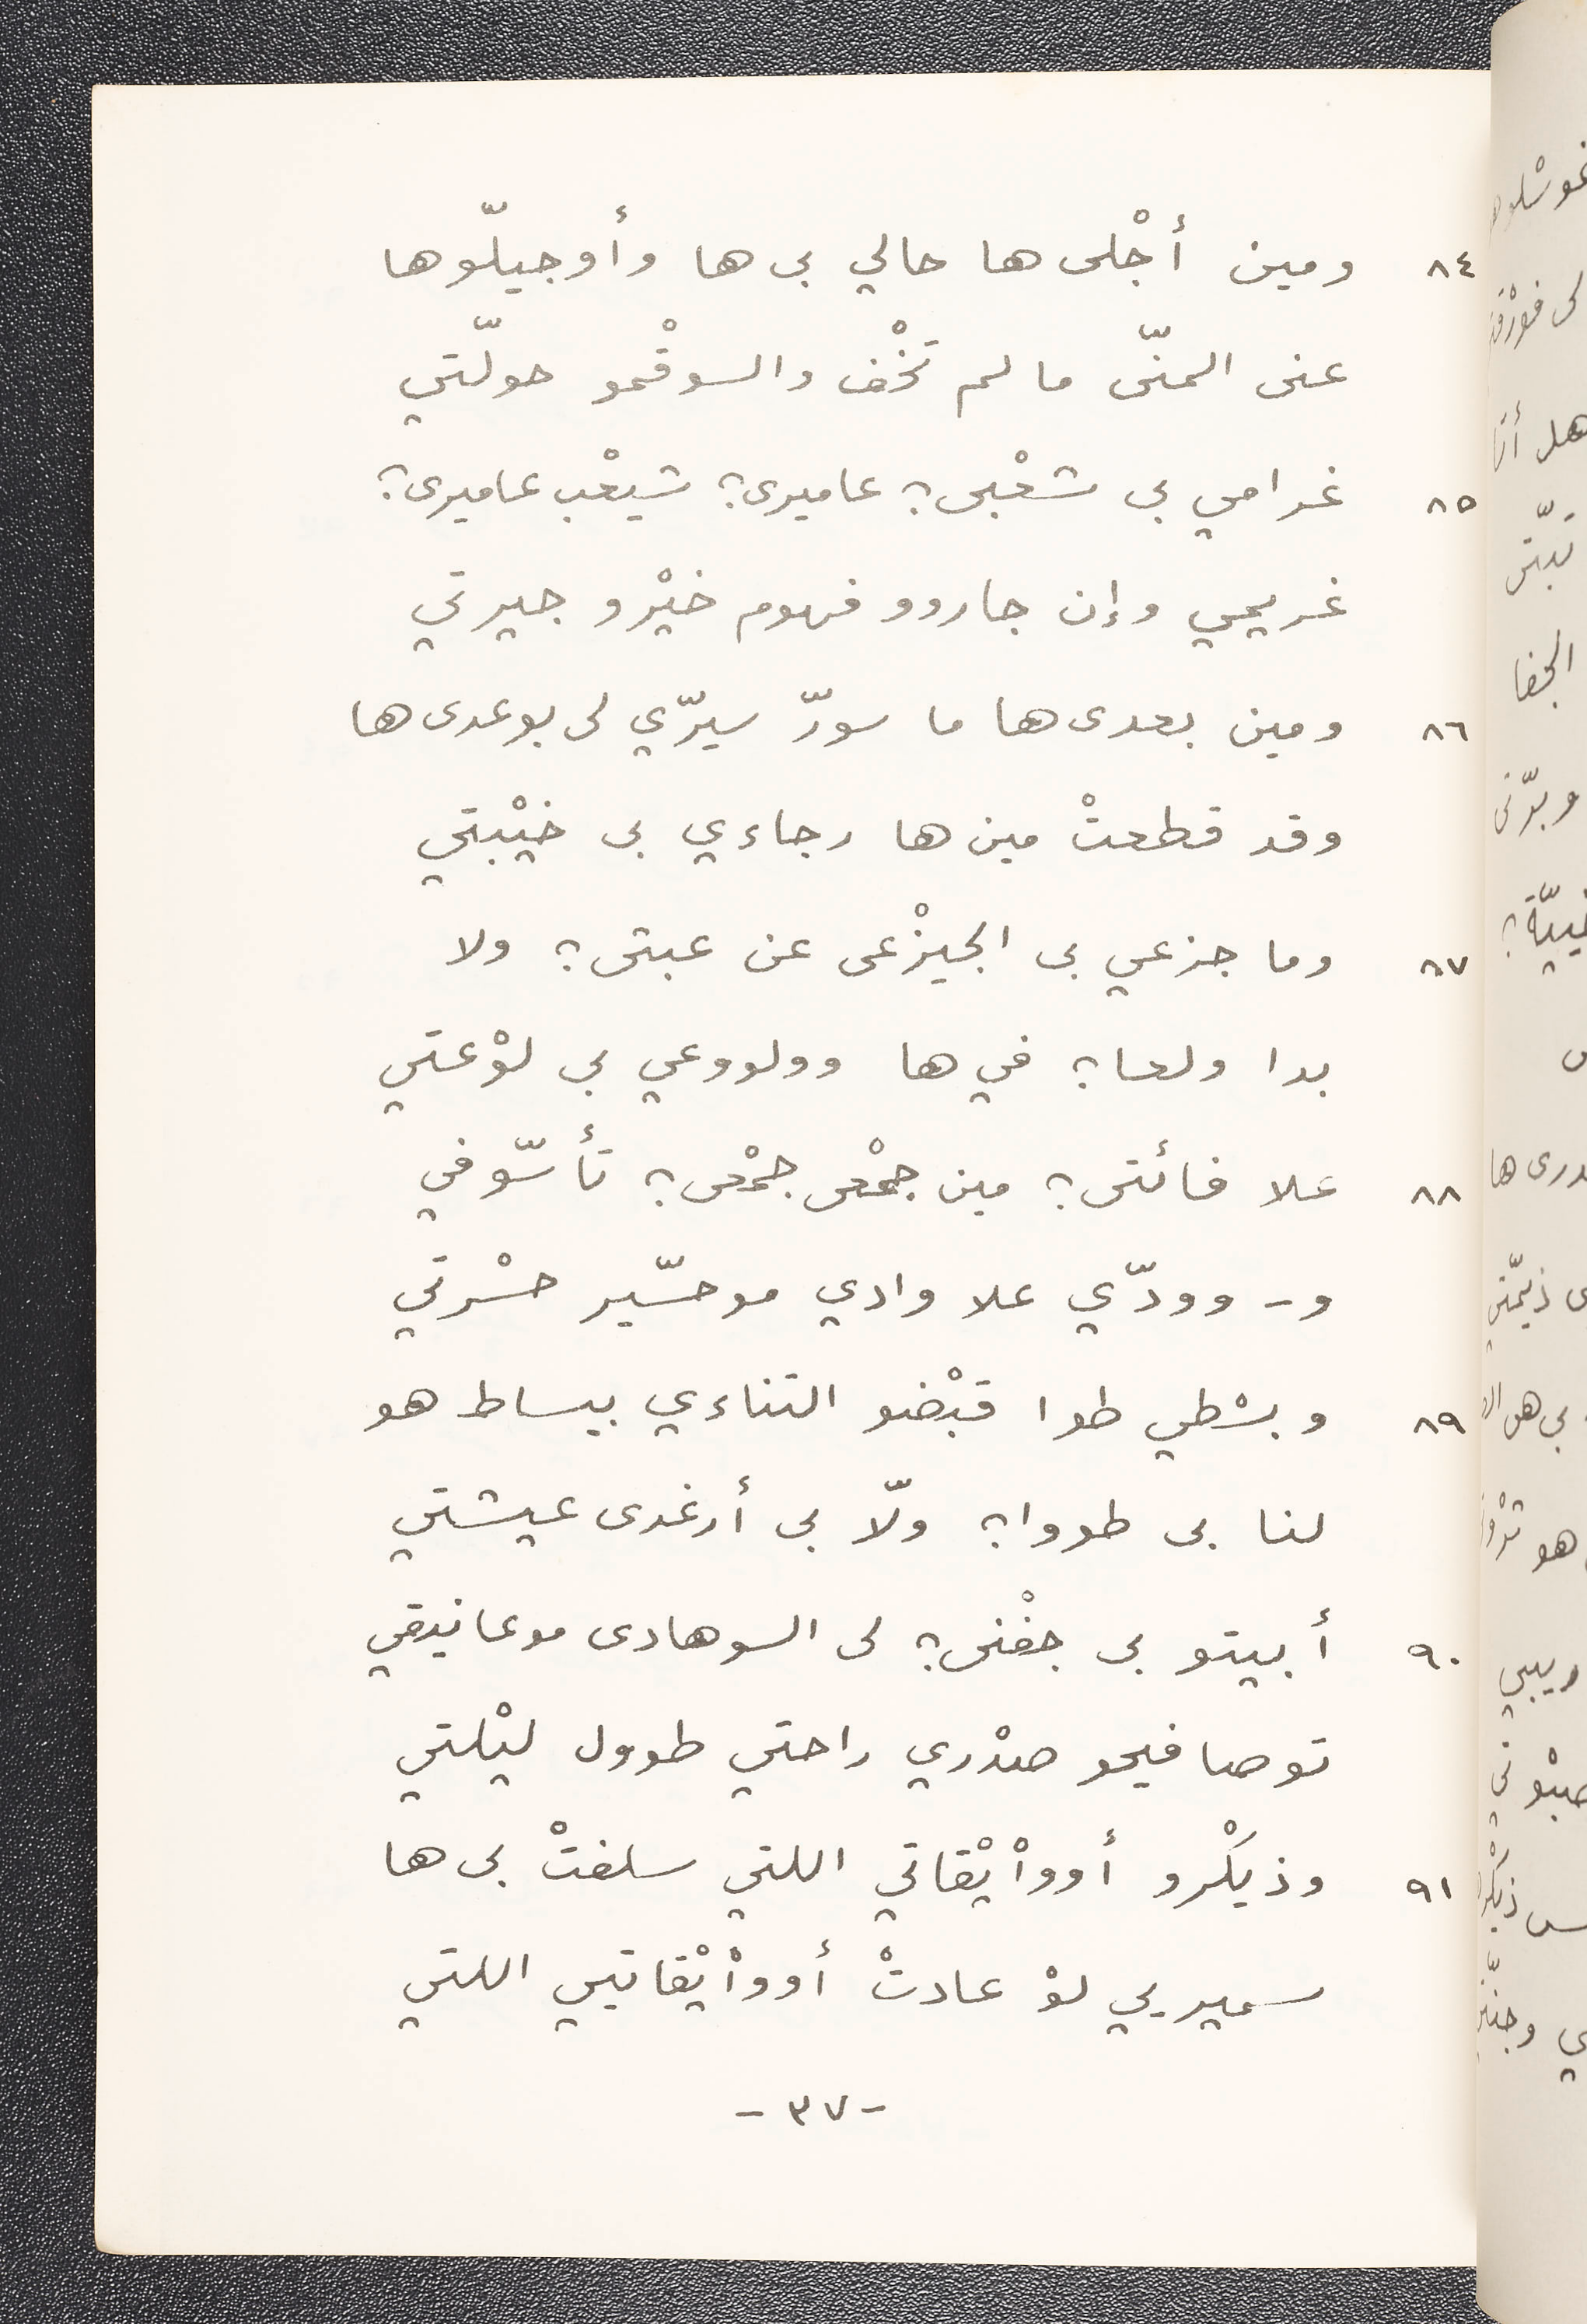 ٨٤ ومين أجْلى ها حالي بى ها وأوجيلّوها
عنى المنّى ما لم تخْف والسوقْمو حولّتي
٨٥ غرامي بى شعْبى؟ عاميرى؟ شيعْب عاميرى؟
غريمي وإن جاروو فهوم خيْرو جيرتي
٨٦ ومين بعدى ها ما سورّ سيرّي لى بوعدى ها
وقد قطعتْ مين ها رجاءي بى خيْبتي
٨٧ وما جزعي بى الجيزْعى عن عبتى؟ ولا
بدا ولعا؟ في ها وولووعي بى لوْعتي
٨٨ علا فائتى؟ مين جمْعى جمْعى؟ تأسّوفي
و- وودّي علا وادي موحسّير حسْرتي
٨٩ وبسْطي طوا قبْضو التناءي بيساط هو
لنا بى طووا؟ ولّا بى أرغدى عيشتي
٩٠ أبيتو بى جفْنى؟ لى السوهادى موعانيقي
توصافيحو صدْري راحتي طوول ليْلتي
٩١ وذيكْرو أوواْيْقاتي اللتي سلفتْ بى ها
سميريي لوْ عادتْ أوواْيْقاتيي اللتي
-٣٧-